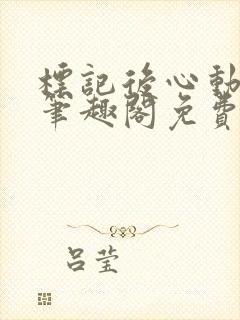 標記後心動
筆趣閣免費
呂莹